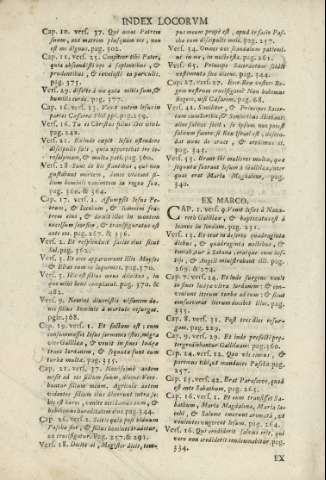 INDEX LOCORVM
Cap. 10. vers. 37. Qui amat Patrem
suum, aut matrem plusquam me, non
est me dignus. pag. 302.
Cap. 11. vers. 25. Confiteor tibi Pater,
quia abscondisti hæc à sapientibus, &
prudentibus, & revelasti ea parvulis.
pag. 375.
Vers. 29. discite à me quia mitis sum, &
humilis corde. pag. 377.
Cap. 16. vers. 13. Venit autem Iesus in
partes Cæsareæ Philippi. pag. 259.
Vers. 16. Tu es Christus filius Dei vivi.
pag. 242.
Vers. 21. Exinde cœpit Iesus ostendere
discipulis suis, quia oporteret ire Ie-
rosolymam, & multa pati. pag. 360.
Vers. 28. Sunt de hic stantibus, qui non
gustabunt mortem, donec videant fi-
lium hominis venientem in regno suo.
pag. & 364.
Cap. 17. vers. 1. Assumpsit Iesus Pe-
trum, & Iacobum, & Ioannem fra-
trem eius, & duxit illos in montem
excelsum seorsum, & transfiguratus est
ante eos. pag. 267. & 356.
Vers. 2. Et resplenduit facies eius sicut
Sol. pag. 362.
Vers. 3. Et ecce apparuerunt illis Moyses
& Elias cum eo loquentes. pag. 370.
Vers. 5. Hic est filius meus dilectus, in
quo mihi bene complacui. pag. 370. &
Vers. 9. Nemini dixeritis visionem do-
nec filius hominis à mortuis resurgat.
pag. 368.
Cap. 19. vers. 1. Et factum est: cum
consummasset Iesus sermones istos, migra-
vit Galilæa, & venit in fines Iudææ
trans Iordanem, & secutæ sunt eum
turbæ multæ. pag. 335.
Cap. 21. vers. 37. Novissimè autem
misit ad eos filium suum, dicens: Vere-
buntur filium meum. Agricolæ autem
videntes filium dixerunt intra se, hic
est hæres, venite occidamus eum, &
habebimus hæreditatem eius. pag. 344.
Cap. 26. vers. 2. Scitis quia post biduum
Pascha fiet, & filius hominis tradetur,
ut crucifigatur. pag. 257. & 291.
Vers. 18. Magister dicit, tem-
pus meum propè est, apud te facio Pas-
cha cum discipulis meis. pag. 257.
Vers. 31. Omnes vos scandalum patiemi-
ni in me, in nocte ista. pag. 261.
Vers. 65. Princeps Sacerdotum scidit
vestimenta sua dicens. pag. 344.
Cap. 27. vers. Ecce Rex vester Re-
gem vestrum crucifigam? Non habemus
Regem, nisi Cæsarem. pag. 68.
Vers. 41. Similiter, & Principes Sacer-
dotum cum Scribis, & Senioribus dicebant:
alios salvos fecit, se ipsum non potest
salvum facere. si Rex Israel est, descen-
dat nunc de Cruce, & credimus ei. pag.
341.
Vers. 55. Erant ibi mulieres multæ, quæ
sequutæ fuerant Iesum à Galilæa, inter
quas erat Maria Magdalene, pag.
340.
EX MARCO.
CAP. 1. vers. 9. Venit Iesus à Naza-
reth Galilææ, & baptizatus est à
Ioanne in Iordane. pag. 251.
Vers. 13. Et erat in deserto quadraginta
diebus, & quadraginta noctibus, &
tentabatur à Satana: eratque cum bes-
tijs, & Angeli ministrabant illi. pag.
269. & 274.
Cap. 10. vers. 1. Et inde surgens venit
in fines Iudææ ultra Iordanem: & con-
veniunt iterum turbæ ad eum: & sicut
consueverat iterum docebat illos. pag.
335.
Cap. 8. vers. 31. Post tres dies resur-
gam. pag. 229.
Cap. 9. vers. 29. Et inde profecti præ-
tergrediebantur Galilæam. pag. 260.
Cap. 14. vers. 12. Quo vis eamus, &
paremus tibi, ut manduces Pascha. pag.
257.
Cap. 15. vers. 42. Erat Parasceve, quod
est ante Sabbatum. pag. 263.
Cap. 16. vers. 1. Et cum transisset Sa-
bathum, Maria Magdalene, Maria Ia-
cobi, & Salome emerunt aromata, ut
venientes ungerent Iesum. pag. 264.
Vers. 16. Qui crediderit salvus erit, qui
vero non crediderit condemnabitur. pag.
334.
EX